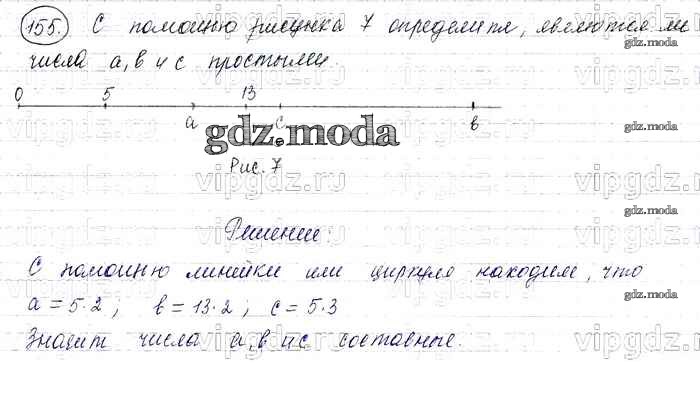 155. С помощью рисунка 7 определите, являются ли
gdz.moda
числа a, b и c простыми.
0 5 13
a c b
gdz.moda
Рис. 7
vipgdz.ru
gdz.moda
Решение:
С помощью линейки или циркуля находим, что
a = 5·2; b = 13·2; c = 5·3
gdz.moda
Значит числа a, b и c составные.
gdz.moda